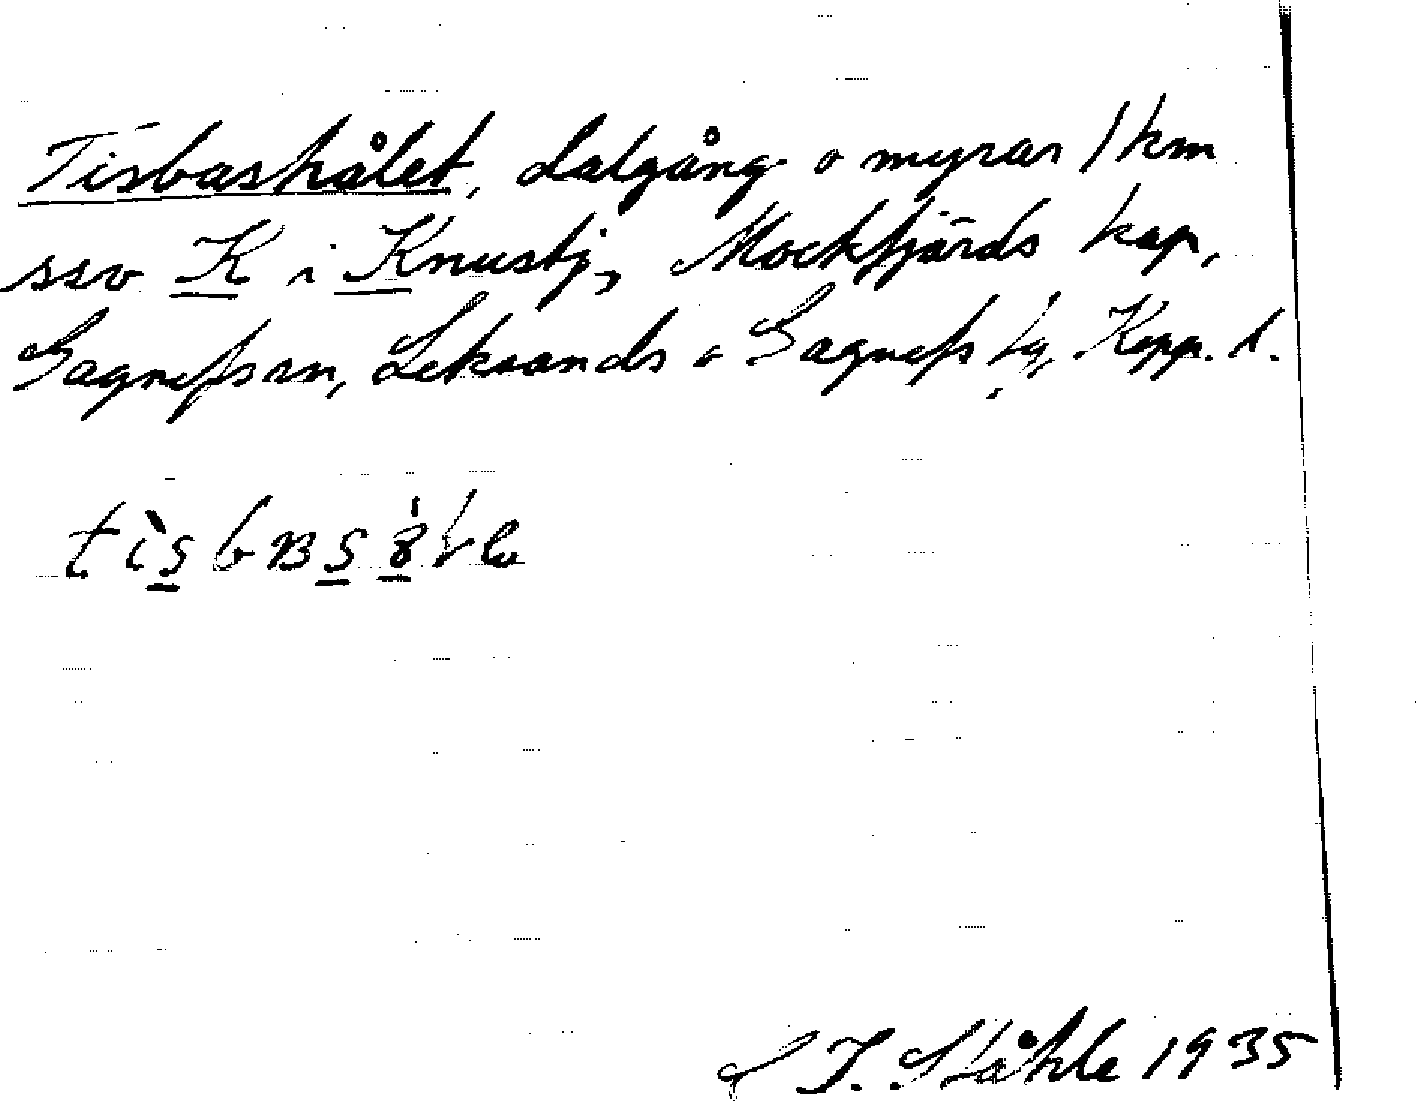 Tisbashålet, dalgång o myrar 1 km
ssv K i Knustj, Mockfjärds kap,
Gagnefs sn, Leksands o Gagnefs tg, Kopp. l.
C I. Ståhle 1935